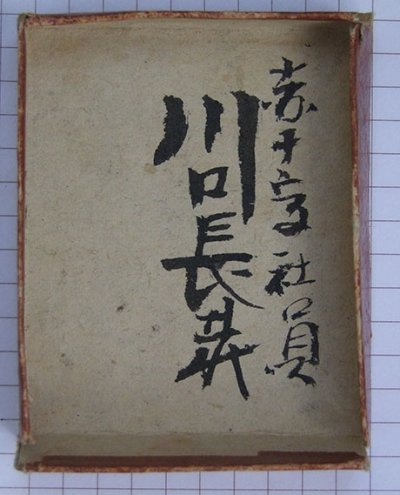 赤十字社員
川口長義